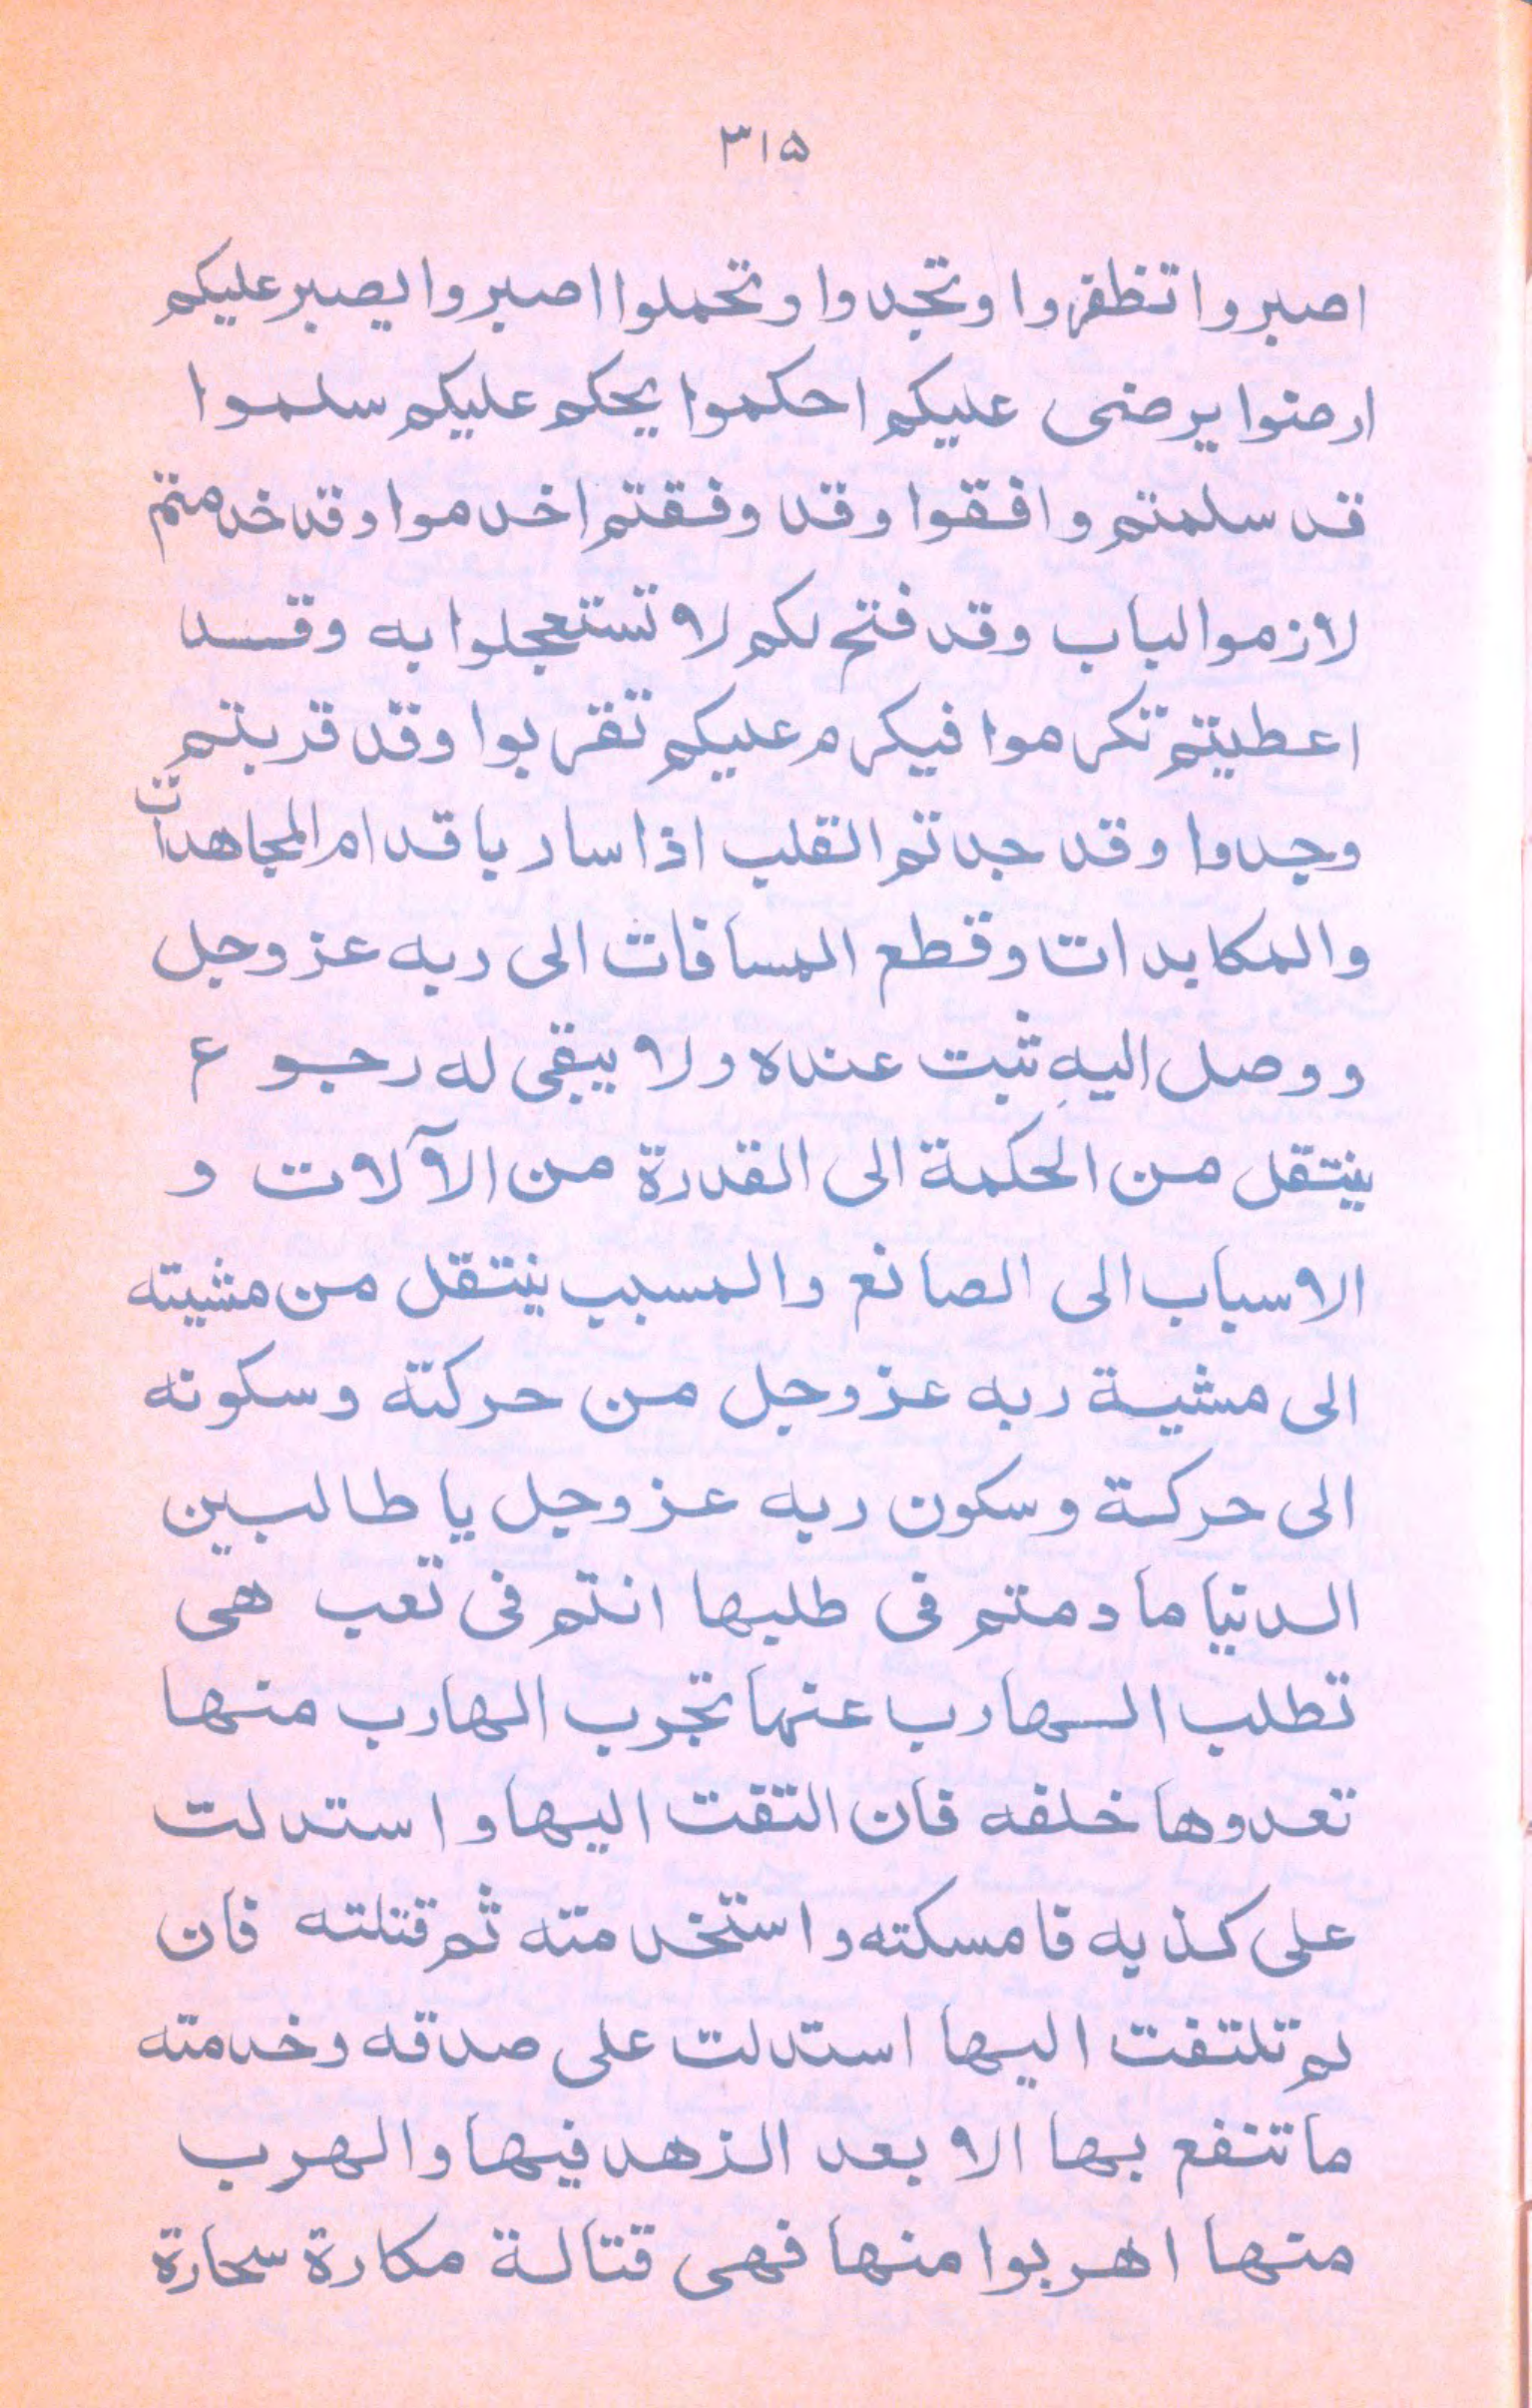 ٣١۵
اصبروا تظفروا وتجدوا وتحملوا اصبروا يصبر عليكم
ارضوا يرضى عليكم احكموا يحكم عليكم سلموا
قد سلمتم وافقوا وقد وفقتم اخدموا وقد خدمتم
لازموا الباب وقد فتح لكم لا تستعجلوا به وقد
اعطيتم تكرموا فيكرم عليكم تقربوا وقد قربتم
وجدوا وقد جدتم القلب اذا سار باقدام المجاهدات
والمكابدات وقطع المسافات الى ربه عز وجل
ووصل اليهِ ثبت عنده ولا يبقى له رجوع
ينتقل من الحكمة الى القدرة من الآلات و
الاسباب الى الصانع والمسبب ينتقل من مشيته
الى مشية ربه عز وجل من حركته وسكونه
الى حركة وسكون ربه عز وجل يا طالبين
الدنيا ما دمتم فى طلبها انتم فى تعب هى
تطلب الهارب عنها تجرب الهارب منها
تعدوها خلفه فان التقت اليها واستدلت
على كذبه قامسكته واستخدمته ثم قتلته فان
لم تلتفت اليها استدلت على صدقه وخدمته
ما تنفع بها الا بعد الزهد فيها والهرب
منها اهربوا منها فهى قتالة مكارة سحارة